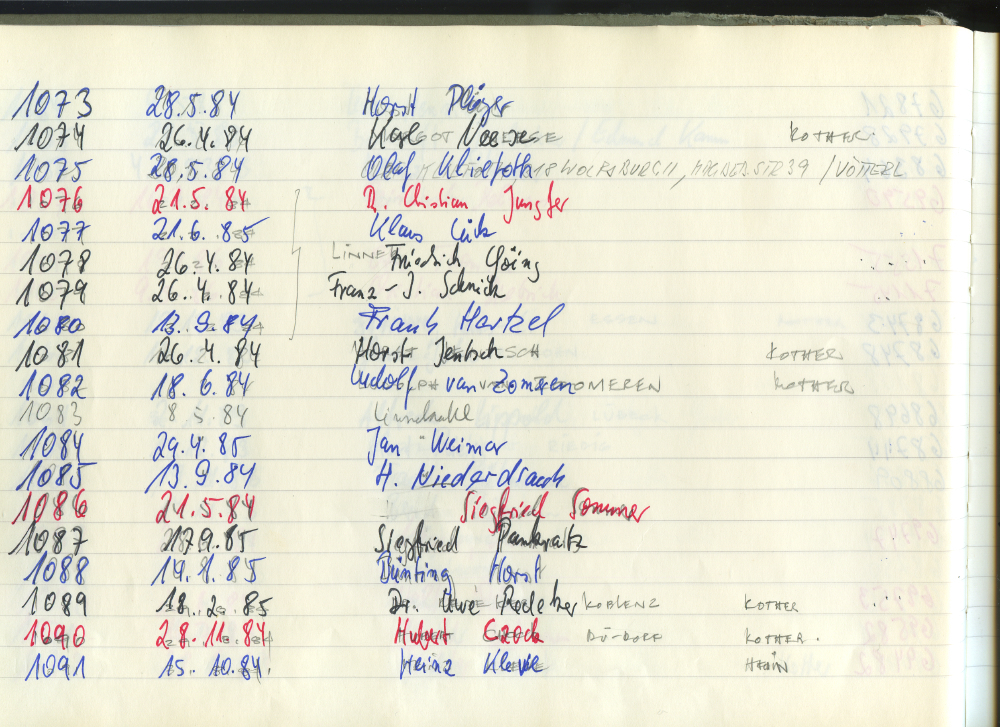 1073 28.5.84 Horst
1074 26.4.84 KOTHER
1075 28.5.84 Olaf Kliefoth 18 WOLFSBURG 11, 39 /
1076 21.5.84 Christian Jungfer
1077 21.6.85 Klaus
1078 26.4.84 LINNE Friedrich
1079 26.4.84 Franz-J. Schnick
1080 13.9.84 Frank Hartzel
1081 26.4.84 Horst Jentsch KOTHER
1082 18.6.84 Rudolf van Zomeren KOTHER
1083 8.5.84
1084 29.4.85 Jan Weimar
1085 13.9.84 H. Niederdrank
1086 21.5.84 Siegfried Sommer
1087 17.9.85 Siegfried Pankratz
1088 19.1.85 Bünting Horst
1089 18.2.85 Dr. Uwe KOBLENZ KOTHER
1090 28.11.84 Hubert Czock DÜ-DORF KOTHER.
1091 15.10.84. Heinz